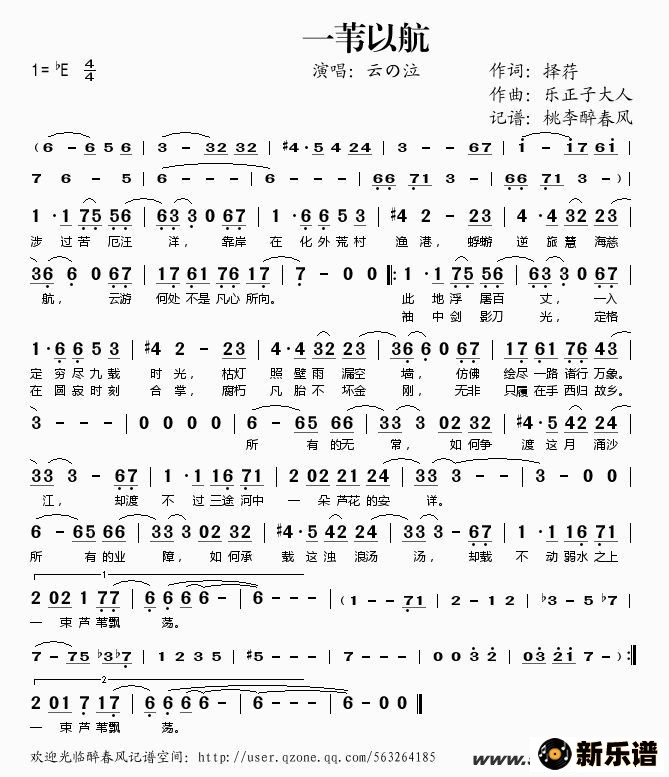 一苇以航
1= ♭E 4/4 演唱：云の泣 作词：择荇
作曲：乐正子大人
记谱：桃李醉春风
( 6 - 6 5 6 | 3 - 32 32 | #4 · 5 4 24 | 3 - - 67 | i - i76i |
7 6 - 5 | 6 - - - | 6 - - - | 66 71 3 - | 66 71 3 - ) |
1 · 1 75 56 | 63 3 0 67 | 1 · 6 6 5 3 | #4 2 - 23 | 4 · 4 32 23 |
涉 过 苦 厄汪 洋， 靠岸 在 化外荒村 渔 港，蜉蝣 逆 旅 慧 海慈
36 6 0 67 | 17 61 76 17 | 7 - 0 0 |: 1 · 1 75 56 | 63 3 0 67 |
航， 云游 何处 不是 凡心 所向。 此 地 浮 屠百 丈， 一入
袖 中 剑 影刀 光， 定格
1 · 6 6 5 3 | #4 2 - 23 | 4 · 4 32 23 | 36 6 0 67 | 17 61 67 17 |
定 穷 尽 九 载 时 光， 枯灯 照 壁 雨 漏空 墙， 仿佛 绘尽 一路 诸行 万象。
在 圆 寂 时 刻 合 掌， 腐朽 凡 胎 不 坏金 刚， 无非 只履 在手 西归 故乡。
3 - - - | 0 0 0 0 | 6 - 65 66 | 33 3 02 32 | #4 · 5 42 24 |
所 有 的无 常， 如 何争 渡 这 月 涌沙
33 3 - 67 | 1 · 1 16 71 | 2 02 21 24 | 33 3 - - | 3 - 0 0 |
江， 却渡 不 过 三途 河中 一 朵 芦花 的安 详。
6 - 65 66 | 33 3 02 32 | #4 · 5 42 24 | 33 3 - 67 | 1 · 1 16 71 |
所 有 的业 障， 如 何承 载 这 浊 浪汤 汤， 却载 不 动 弱水 之上
1
2 02 1 77 | 6 6 6 6 - | 6 - - - | (1 - - 71 | 2 - 1 2 | ♭3 - 5 ♭7 |
一 束 芦 苇飘 荡。
7 - 75 ♭3♭7 | 1 2 3 5 | #5 - - - | 7 - - - | 0 0 03 2 | 03 2i 7 - ) :|
2
2 01 7 17 | 6 6 6 6 - | 6 - - - | 6 - 0 0 ||
一 束 芦 苇飘 荡。
欢迎光临醉春风记谱空间：http://user.qzone.qq.com/563264185 www. 新乐谱